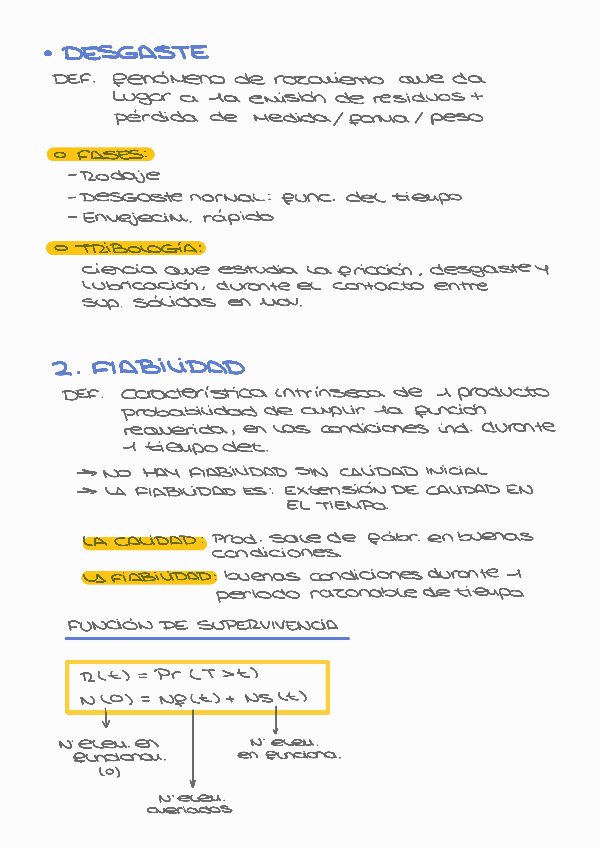 • DESGASTE
DEF. Fenómeno de rozamiento que da
lugar a -1a emisión de residuos +
pérdida de medida / forma / peso
o FASES:
- Rodaje
- Desgaste normal: func. del tiempo
- Envejecim. rápido
o TRIBOLOGÍA:
ciencia que estudia la fricción, desgaste y
lubricación, durante el contacto entre
sup. sólidas en mov.
2. FIABILIDAD
DEF. característica intrínseca de -1 producto
probabilidad de cumplir -1a función
requerida, en las condiciones ind. durante
-1 tiempo det.
→ NO HAY FIABILIDAD SIN CALIDAD INICIAL
→ LA FIABILIDAD ES: EXTENSIÓN DE CALIDAD EN
EL TIEMPO.
LA CALIDAD: Prod. sale de fábr. en buenas
condiciones.
LA FIABILIDAD: buenas condiciones durante -1
periodo razonable de tiempo
FUNCIÓN DE SUPERVIVENCIA
R(t) = Pr (T > t)
N(0) = Nf(t) + Ns(t)
Nº elem. en
funcionam.
(0)
Nº elem.
en funciona.
Nº elem.
averiados